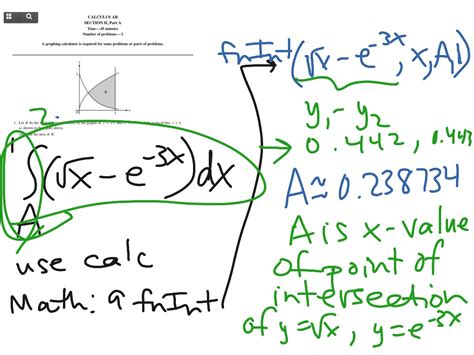 CALCULUS AB
SECTION II, Part A
Time—45 minutes
Number of problems—3
A graphing calculator is required for some problems or parts of problems.
R
2.
1
∫(√x − e^-3x)dx
A
use calc
Math: 9 fnInt
fnInt(√x − e^-3x, x, A, 1)
y₁ − y₂
0.442, 0.443
A ≈ 0.238734
A is x-value
of point of
intersection
of y=√x, y=e^-3x